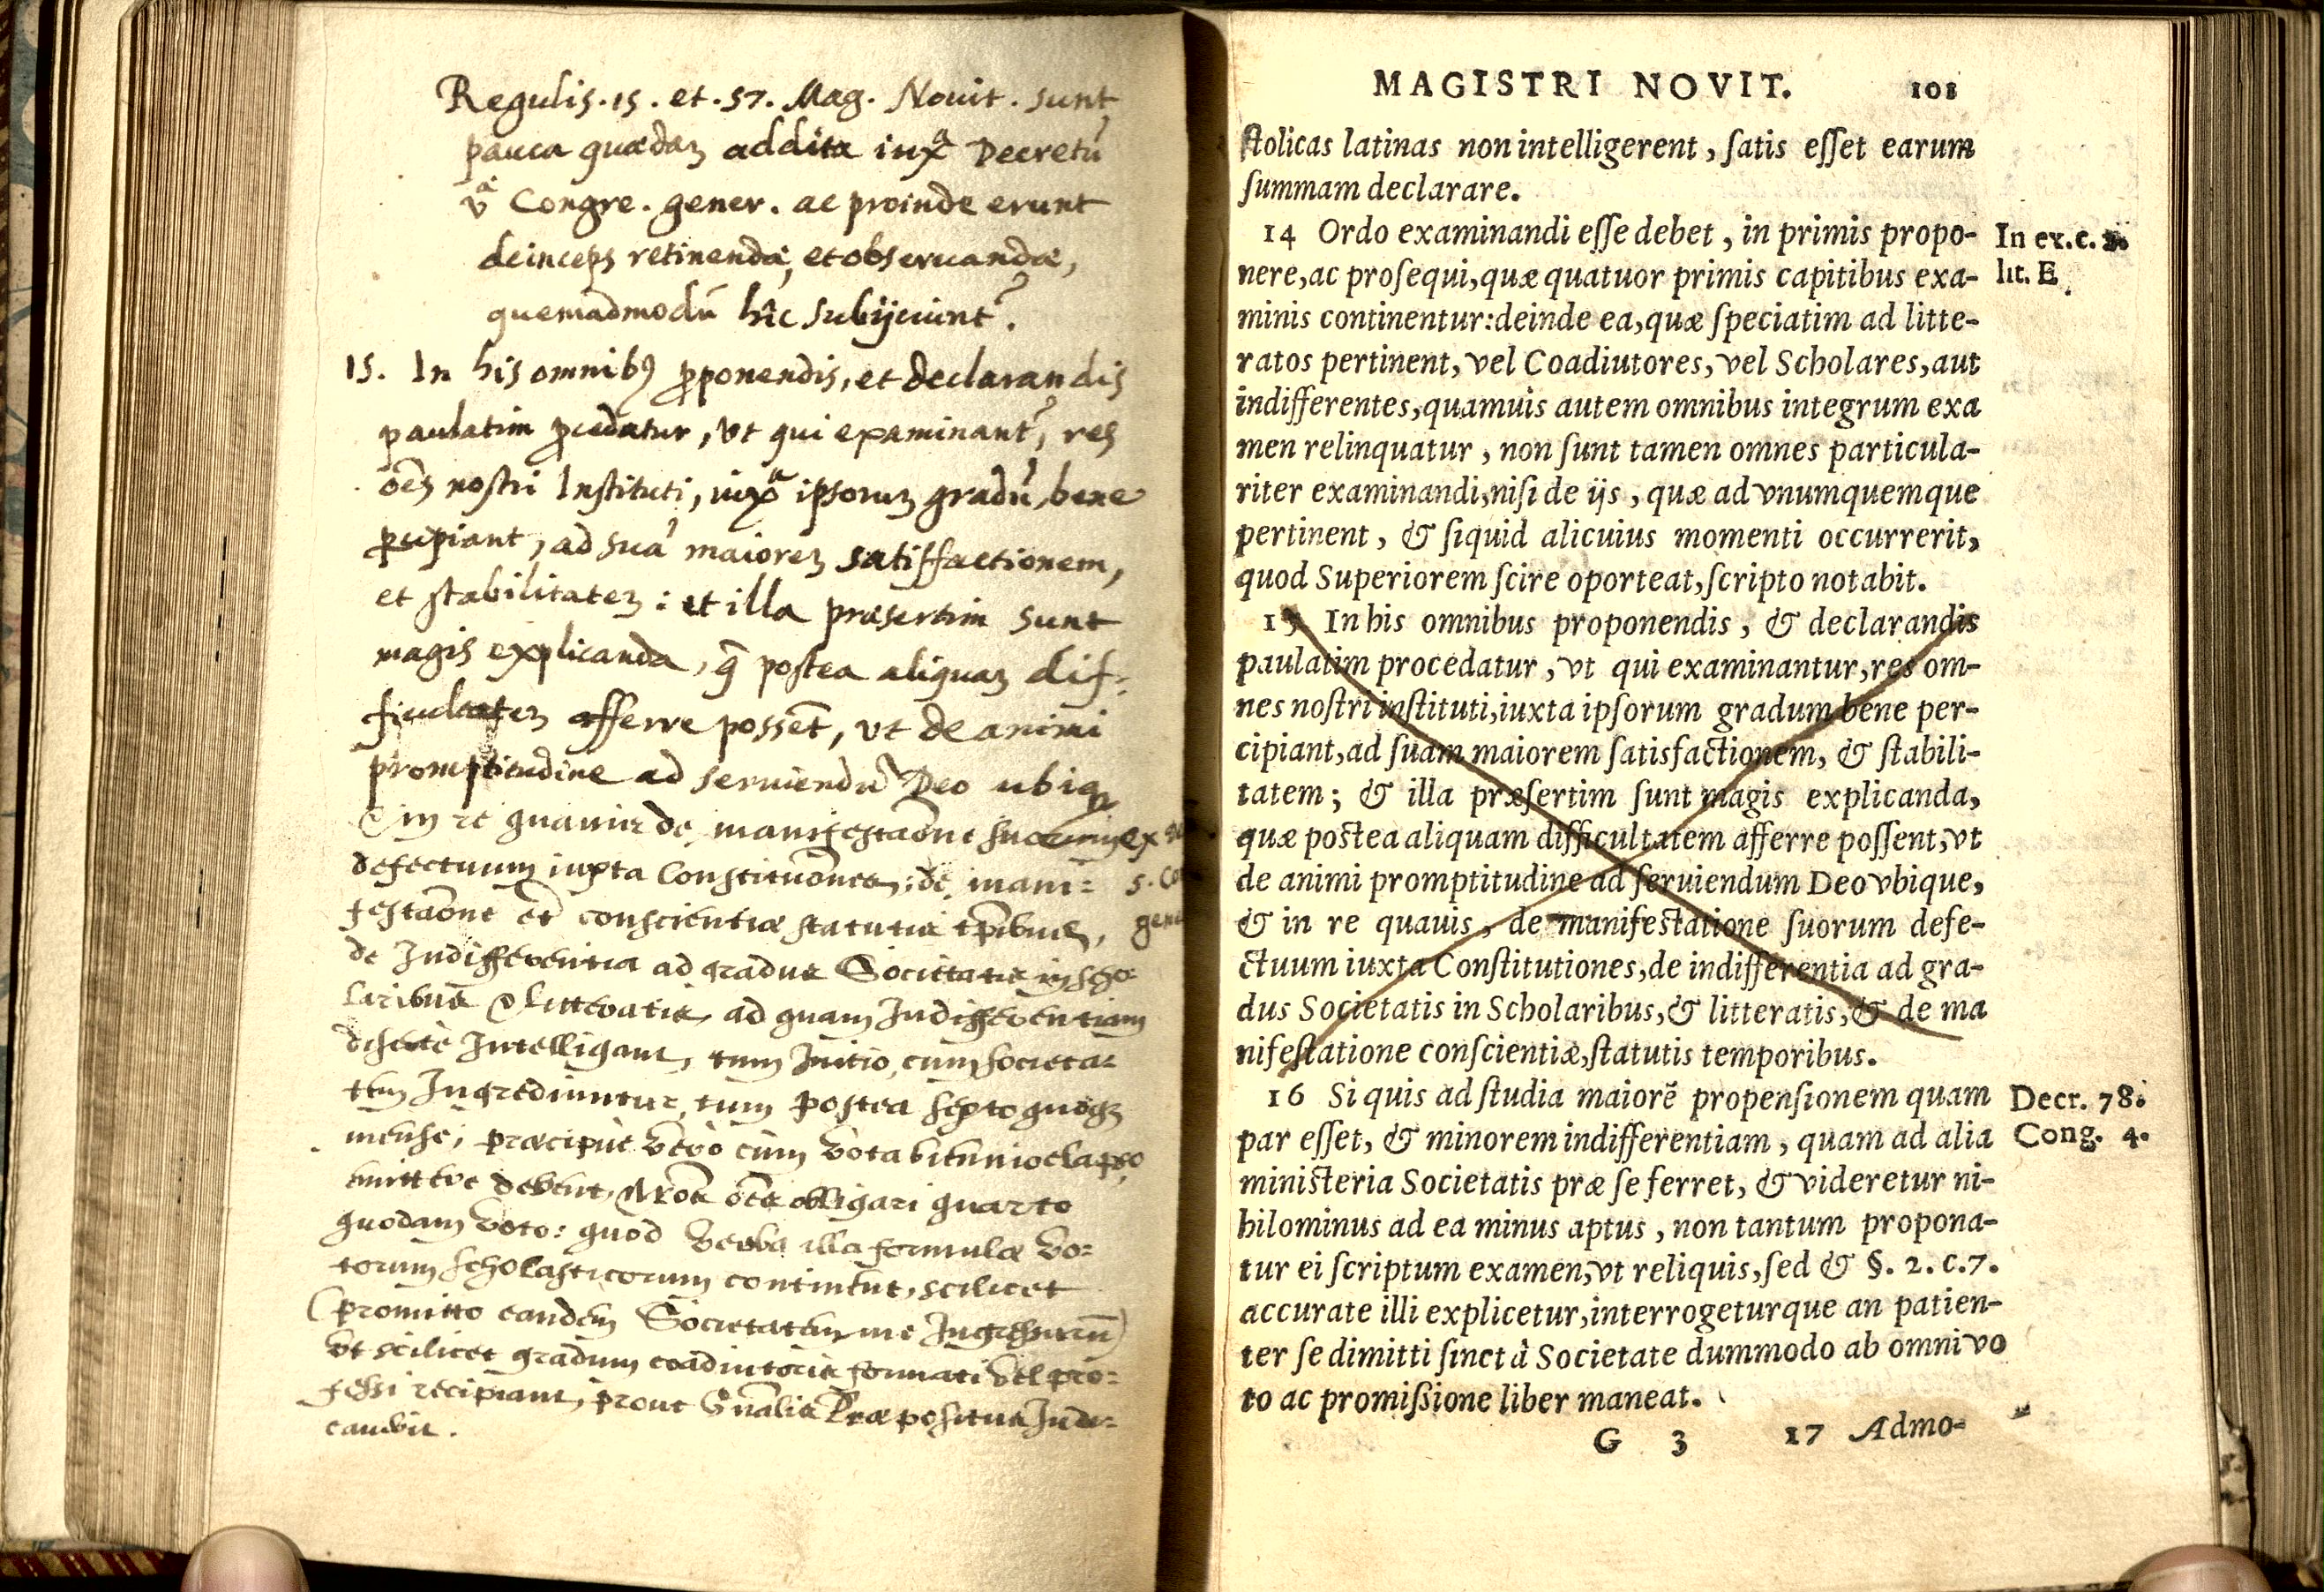 Regulis. 15. et. 57. Mag. Novit. sunt
pauca quædaꝫ addita iuxᵃ Decretũ
vᵃ Congre. gener. ac proinde erunt
deinceps retinendæ, et observandæ,
quemadmodũ hîc subijciunt^ɂ.
15. In his omnibꝰ ꝓponendis, et declarandis
paulatim ꝓcedatur, vt qui examinant^ɂ, res
oẽs nostri Instituti, iuxᵃ ipsorum gradũ, bene
ꝑcipiant, ad suã maioreꝫ satisfactionem,
et stabilitateꝫ: et illa præsertim sunt
magis explicanda, q̃ postea aliquaꝫ dif-
ficultateꝫ afferre possẽt, vt de animi
promptitudine ad serviendũ Deo ubiqꝫ
& in re quavis de manifestaõne suorum ex
defectuum iuxta Constituõnes; de mani= 5. Co
festaõne et conscientiæ statutis tp̃ibus, gene
de Indifferentia ad gradus Societatis in scho-
laribus & litteratis, ad quam Indifferentiam
Intelligant, tum Initio, cum Societa-
tem Ingrediuntur, tum postea sexto quoqꝫ
mense; præcipuè verò cùm vota biennio elapso,
mittere debent, oẽs obligari quarto
quodam voto: quod verba illa formulæ vo=
torum scholasticorum continent, scilicet
(promitto eandem Societatem me Ingressurũ)
vt scilicet gradum coadiutoris formati vel pro=
fessi recipiant, prout Gñalis Præpositus Iudi-
caverit.
MAGISTRI NOVIT. 101
ſtolicas latinas non intelligerent, ſatis eſſet earum
ſummam declarare.
14 Ordo examinandi eſſe debet, in primis propo- In ex. c. 2.
nere, ac proſequi, quæ quatuor primis capitibus exa- lit. E.
minis continentur: deinde ea, quæ ſpeciatim ad litte-
ratos pertinent, vel Coadiutores, vel Scholares, aut
indifferentes, quamuis autem omnibus integrum exa
men relinquatur, non ſunt tamen omnes particula-
riter examinandi, niſi de ijs, quæ ad vnumquemque
pertinent, & ſiquid alicuius momenti occurrerit,
quod Superiorem ſcire oporteat, ſcripto notabit.
15 In his omnibus proponendis, & declarandis
paulatim procedatur, vt qui examinantur, res om-
nes noſtri inſtituti, iuxta ipſorum gradum bene per-
cipiant, ad ſuam maiorem ſatisfactionem, & ſtabili-
tatem; & illa præſertim ſunt magis explicanda,
quæ poſtea aliquam difficultatem afferre poſſent, vt
de animi promptitudine ad ſeruiendum Deo vbique,
& in re quauis, de manifeſtatione ſuorum defe-
ctuum iuxta Conſtitutiones, de indifferentia ad gra-
dus Societatis in Scholaribus, & litteratis, & de ma
nifeſtatione conſcientiæ, ſtatutis temporibus.
16 Si quis ad ſtudia maiorē propenſionem quam Decr. 78.
par eſſet, & minorem indifferentiam, quam ad alia Cong. 4.
miniſteria Societatis præ ſe ferret, & videretur ni-
hilominus ad ea minus aptus, non tantum propona-
tur ei ſcriptum examen, vt reliquis, ſed & §. 2. c. 7.
accurate illi explicetur, interrogeturque an patien-
ter ſe dimitti ſinet à Societate dummodo ab omni vo
to ac promiſſione liber maneat.
G 3 17 Admo-